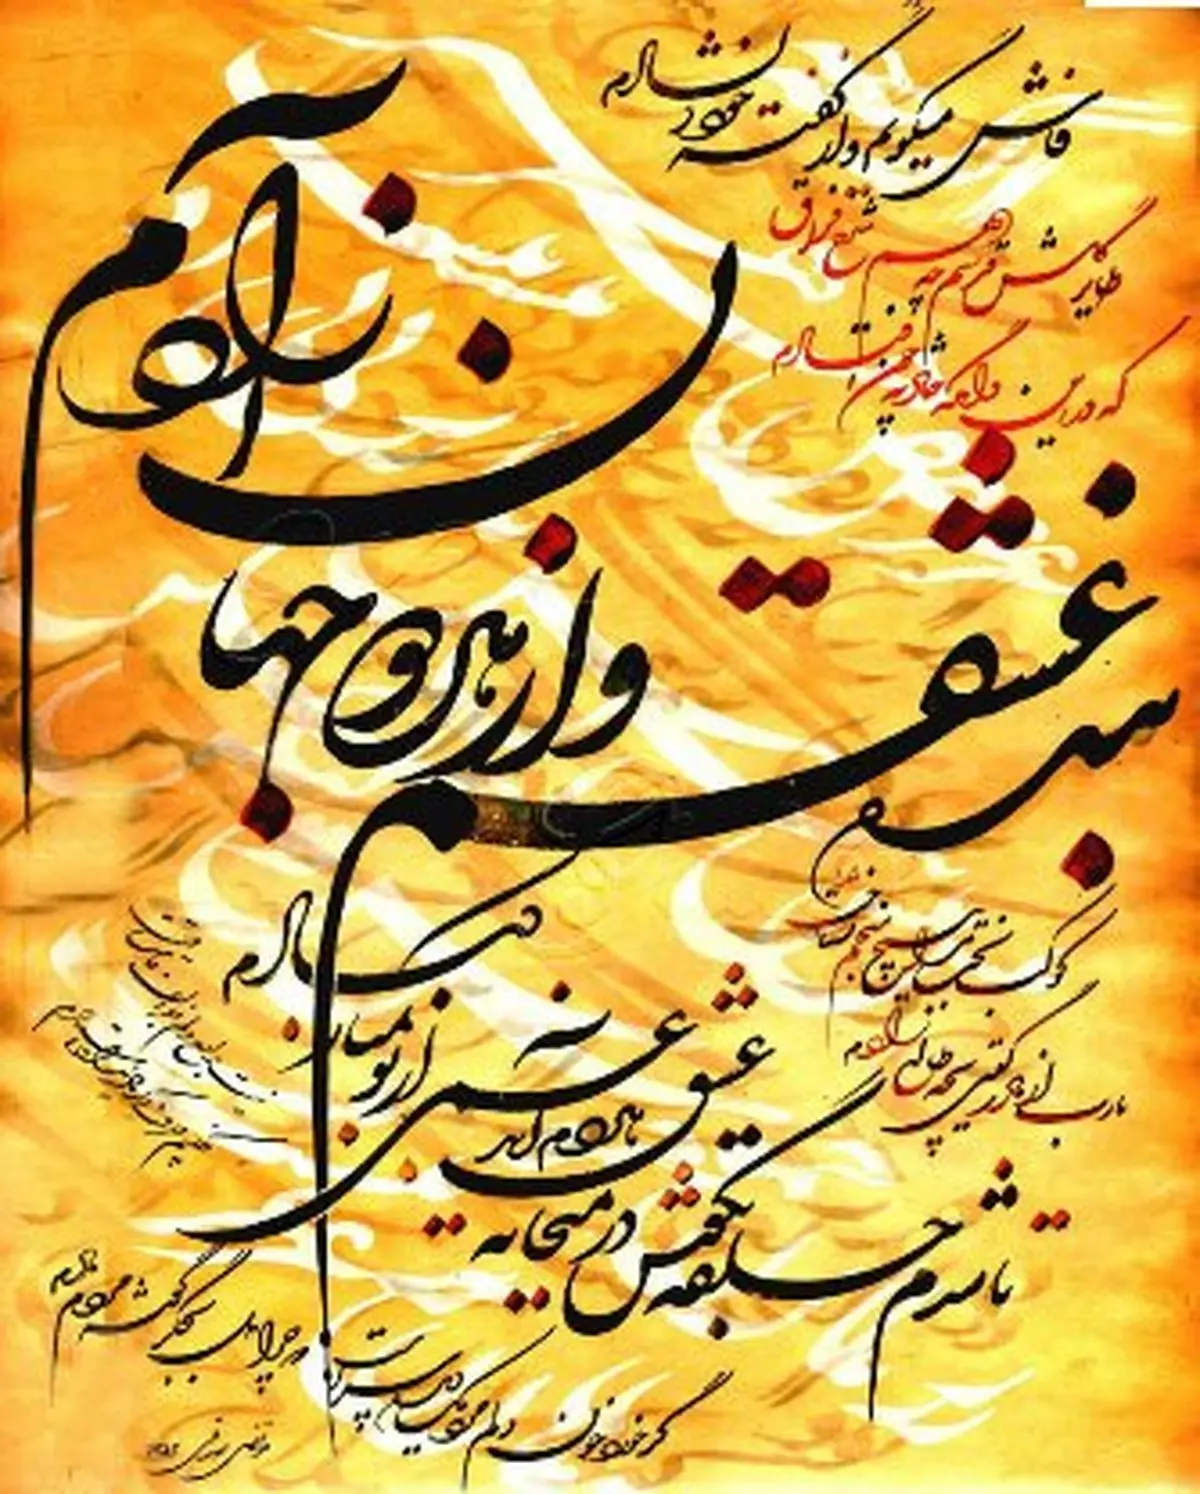 فاش میگویم و از گفته خود دلشادم
بنده عشقم و از هر دو جهان آزادم
طایر گلشن قدسم چه دهم شرح فراق
که در این دامگه حادثه چون افتادم
کوکب بخت مرا هیچ منجم نشناخت
یارب از مادر گیتی به چه طالع زادم
تا شدم حلقه بگوش در میخانه عشق
هر دم آید غمی از نو به مبارکبادم
گر خورد خون دلم مردمک دیده سزاست
که چرا دل به جگر گوشه مردم دادم